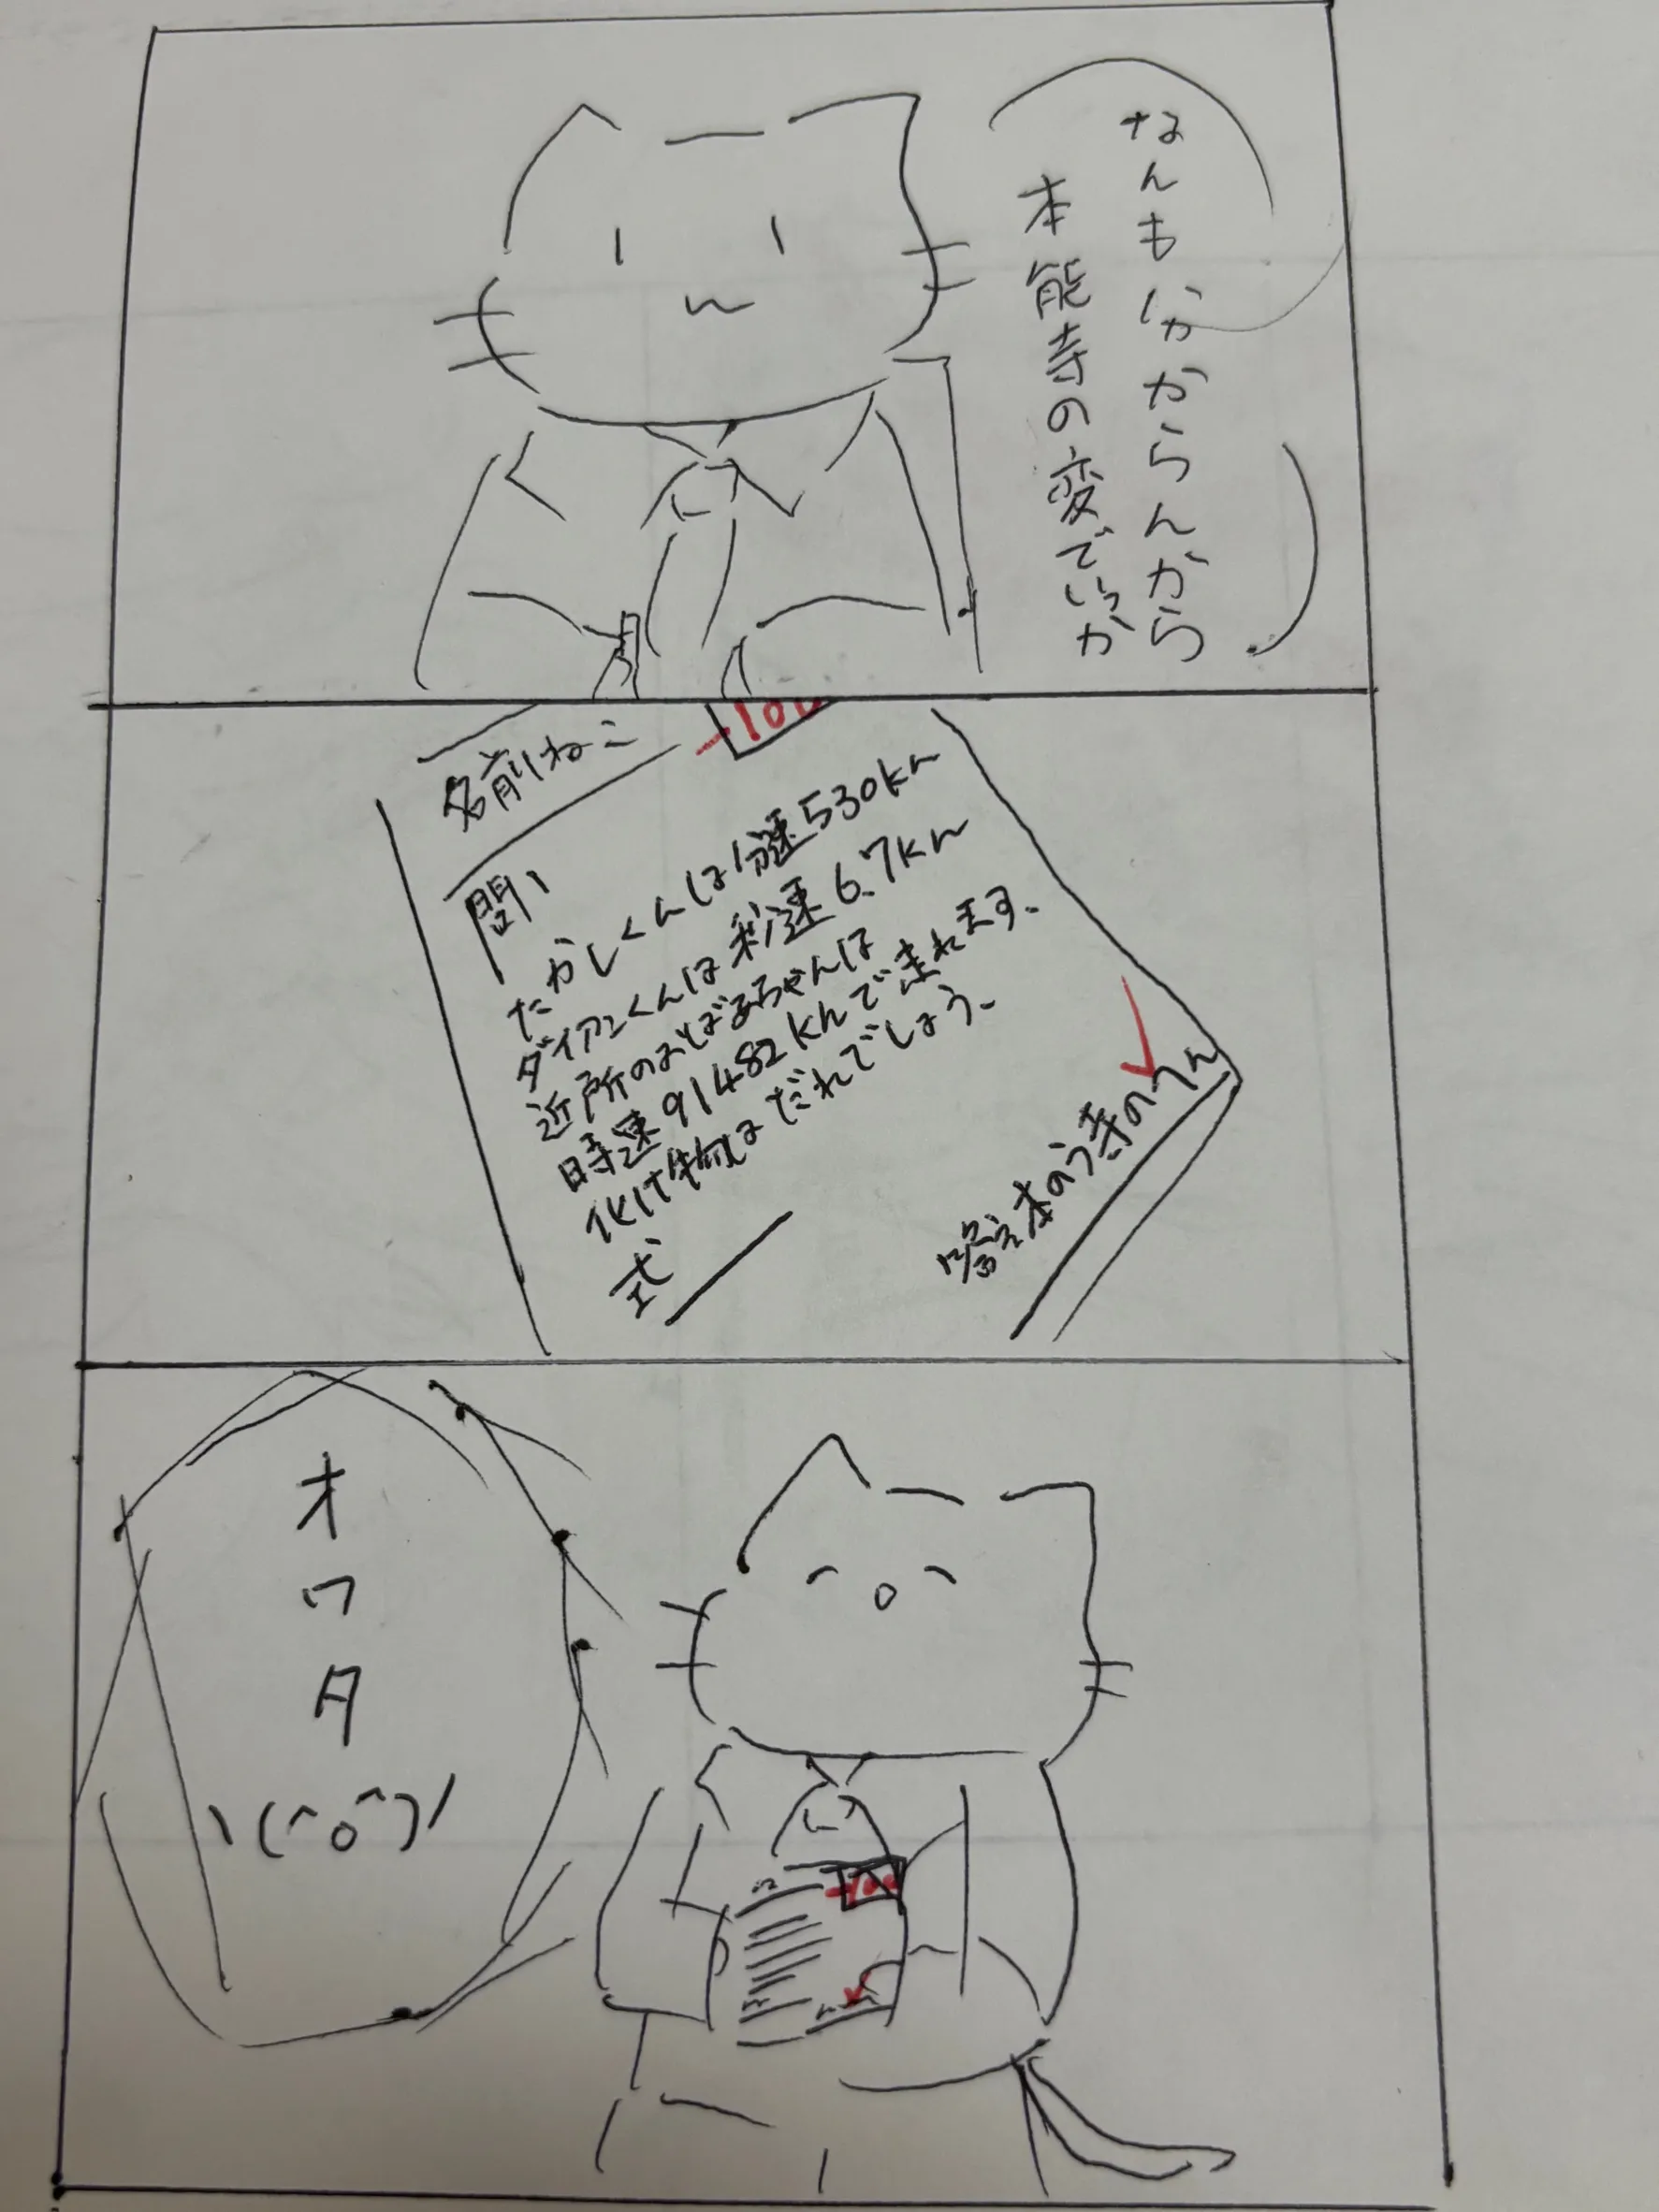 なんも分かからんから
本能寺の変でいっか
-100
名前 ねこ
問、
たかしくんは分速530km
ダイアンくんは秒速6.7km
近所のおばあちゃんは
時速91482kmで走れます、
化け物はだれでしょう、
式
答え本のう寺のへん
オワタ
\(^o^)/
-100